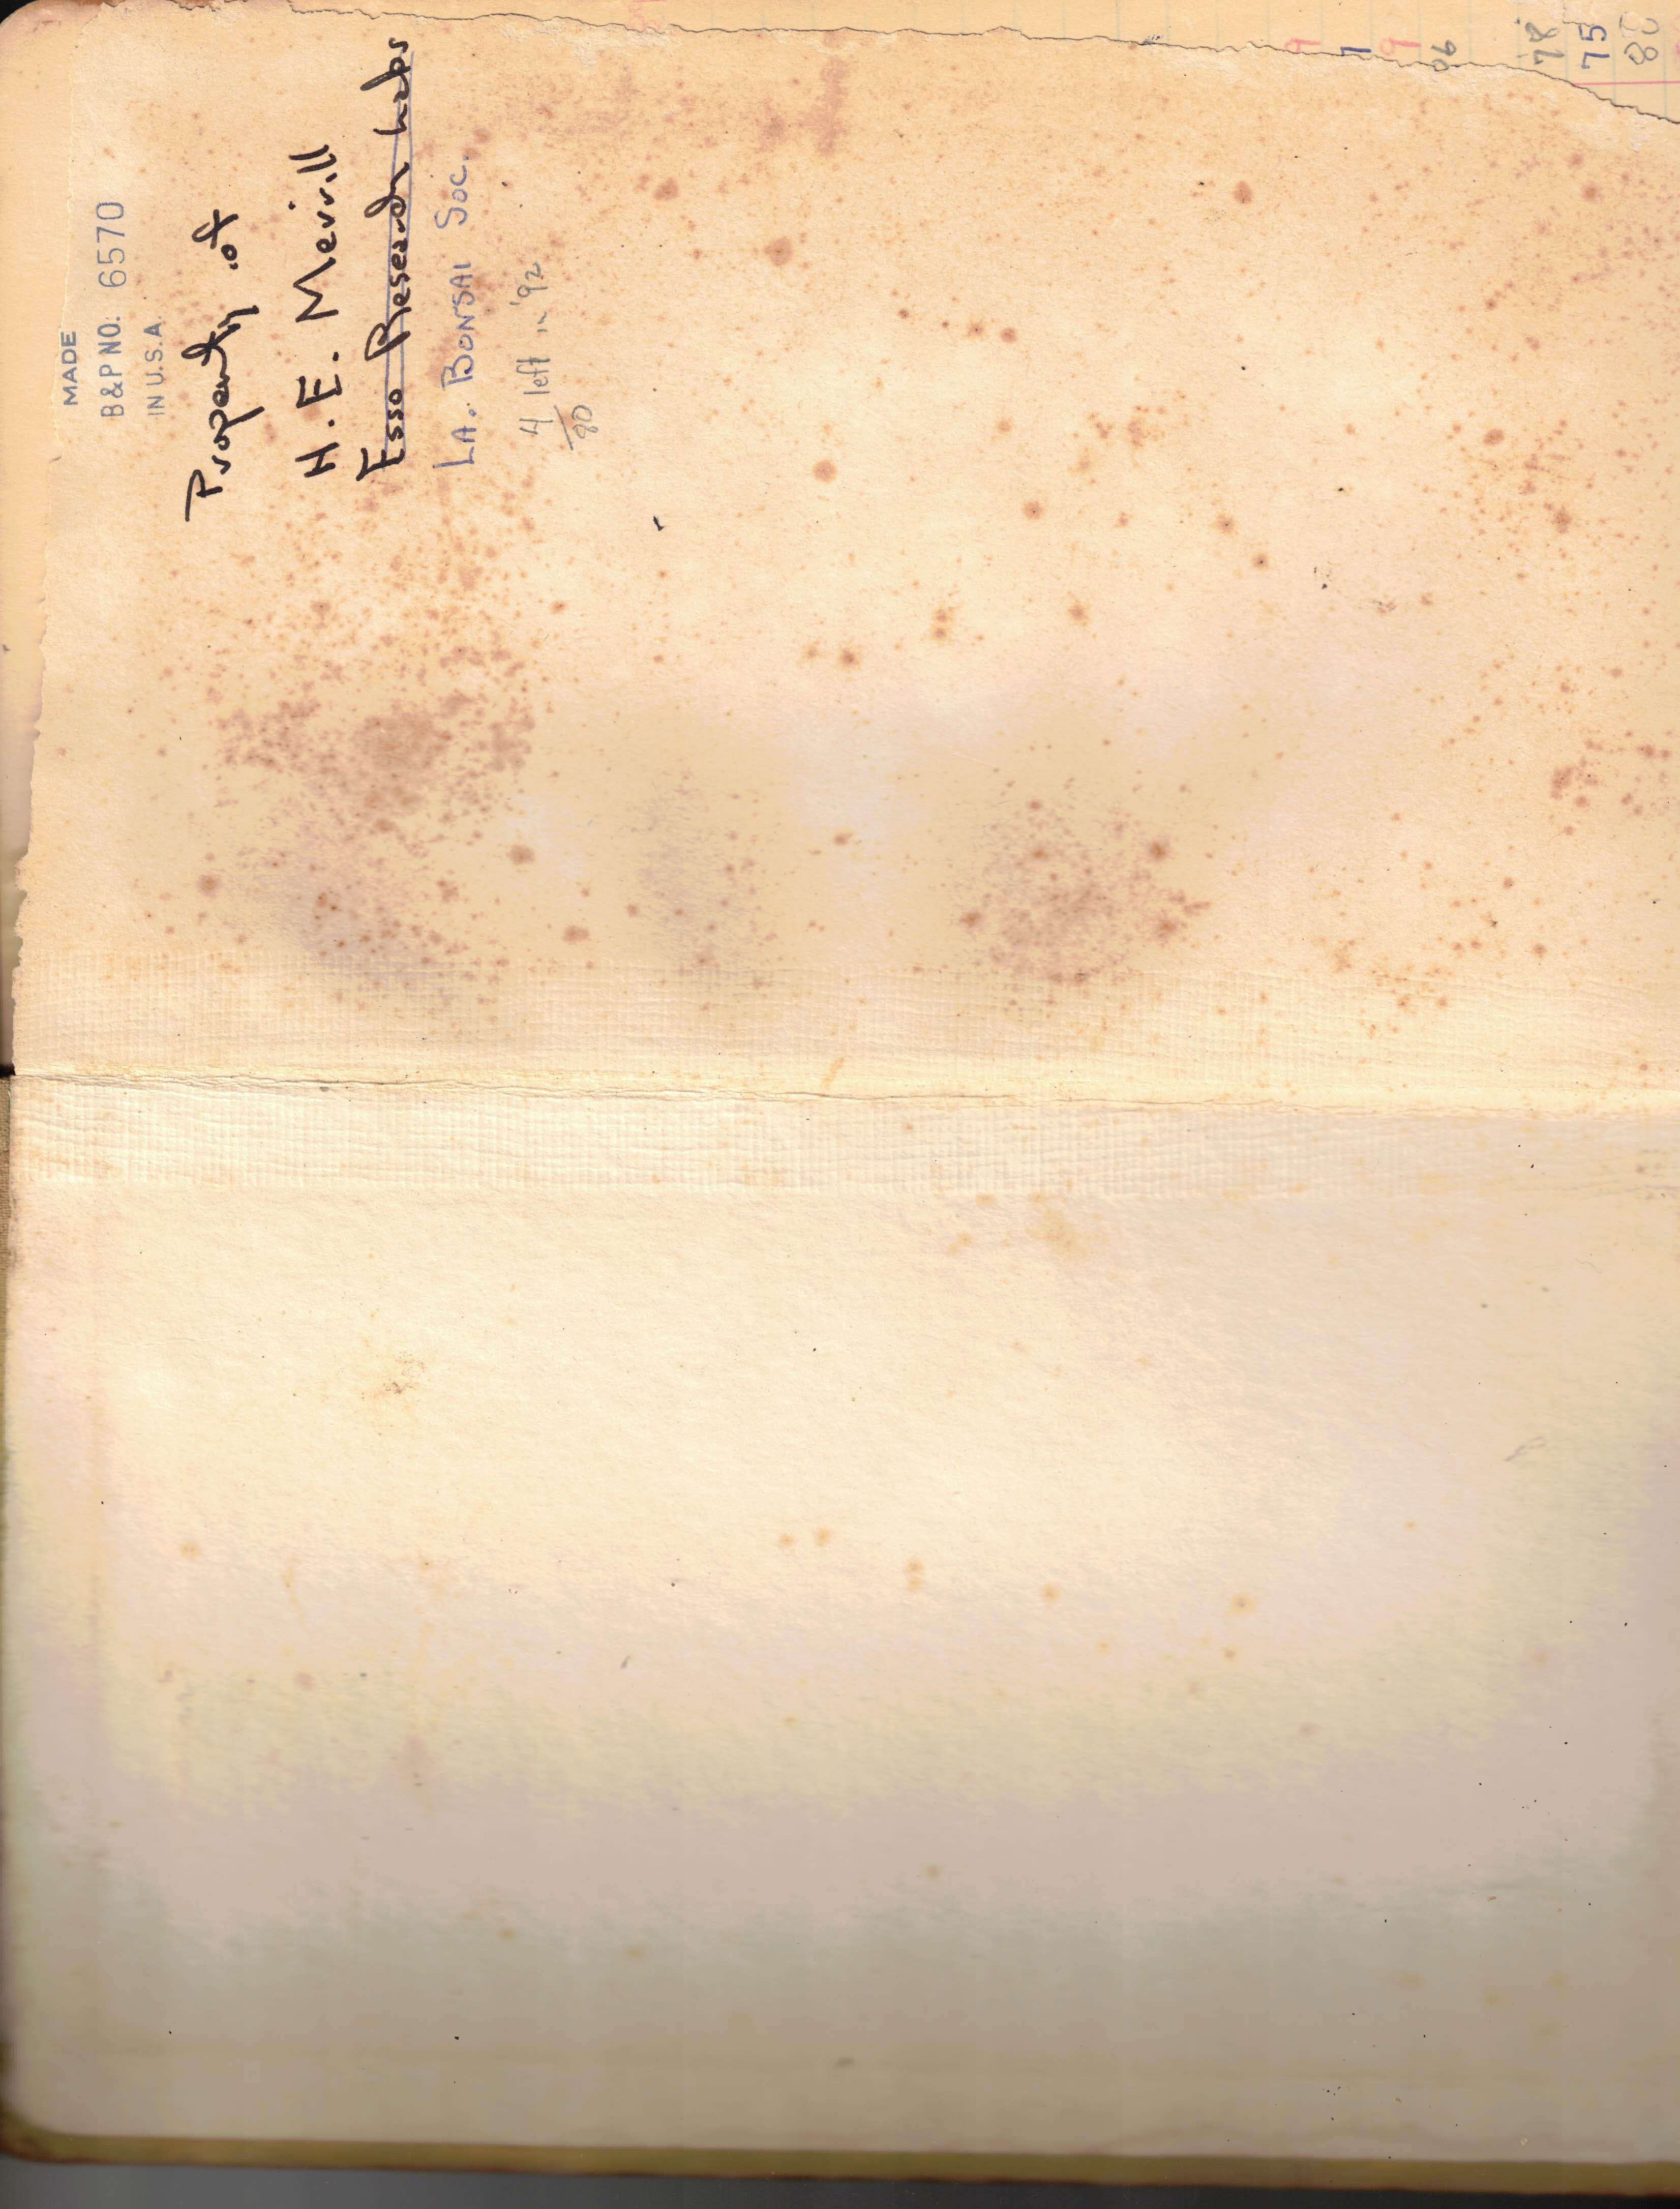 MADE
B&P NO. 6570
IN U.S.A.
Property of
H. E. Merrill
Esso Research Labs
LA. BONSAI SOC.
4 left in '92
80
9
7
9
06
78
75
80